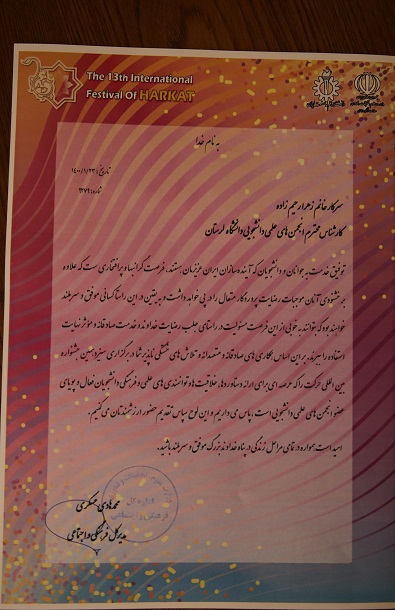 The 13th International
Festival Of HARKAT
به نام خدا
تاریخ: ۱۴۰۰/۱/۲۳
شماره: ۱۳۷۹
سرکار خانم زهرا رحیم زاده
کارشناس محترم انجمن های علمی دانشجویی دانشگاه لرستان
توفیق خدمت به جوانان و دانشجویان که آینده سازان ایران عزیزمان هستند، فرصت گرانبها و پرافتخاری ست که علاوه
بر خشنودی آنان موجبات رضایت پروردگار متعال را در پی خواهد داشت و به یقین در این راستا کسانی موفق و سربلند
خواهند بود که بتوانند به خوبی از این فرصت مسئولیت در راستای جلب رضایت خداوند و خدمت صادقانه و موثر نهایت
استفاده را ببرند. بر این اساس همکاری های صادقانه و متعهدانه و تلاش های خستگی ناپذیر شما در برگزاری سیزدهمین جشنواره
بین المللی حرکت را که عرصه ای برای ارائه دستاوردها، خلاقیت ها و توانمندی های علمی و فرهنگی دانشجویان فعال و پویای
عضو انجمن های علمی دانشجویی است، پاس می داریم و این لوح سپاس تقدیم حضور ارزشمندتان می کنیم.
امید است همواره در تمامی مراحل زندگی در پناه خداوند بزرگ موفق و سربلند باشید.
اداره کل
فرهنگی و اجتماعی
محمدهادی عسکری
مدیرکل فرهنگی و اجتماعی